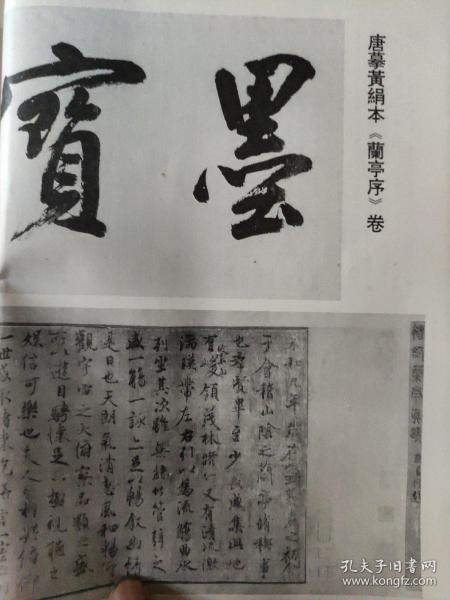 唐摹黃絹本《蘭亭序》卷
墨寶
永和九年歲在癸丑暮春之初
于會稽山陰之蘭亭脩稧事
也羣賢畢至少長咸集此地
有崇山峻領茂林脩竹又有清流激
湍暎帶左右引以為流觴曲水
列坐其次雖無絲竹管弦之
盛一觴一詠亦足以暢敘幽情
是日也天朗氣清惠風和暢仰
觀宇宙之大俯察品類之盛
所以遊目騁懷足以極視聽之
娛信可樂也夫人之相與俯仰
一世或取諸懷抱
孔夫子旧书网